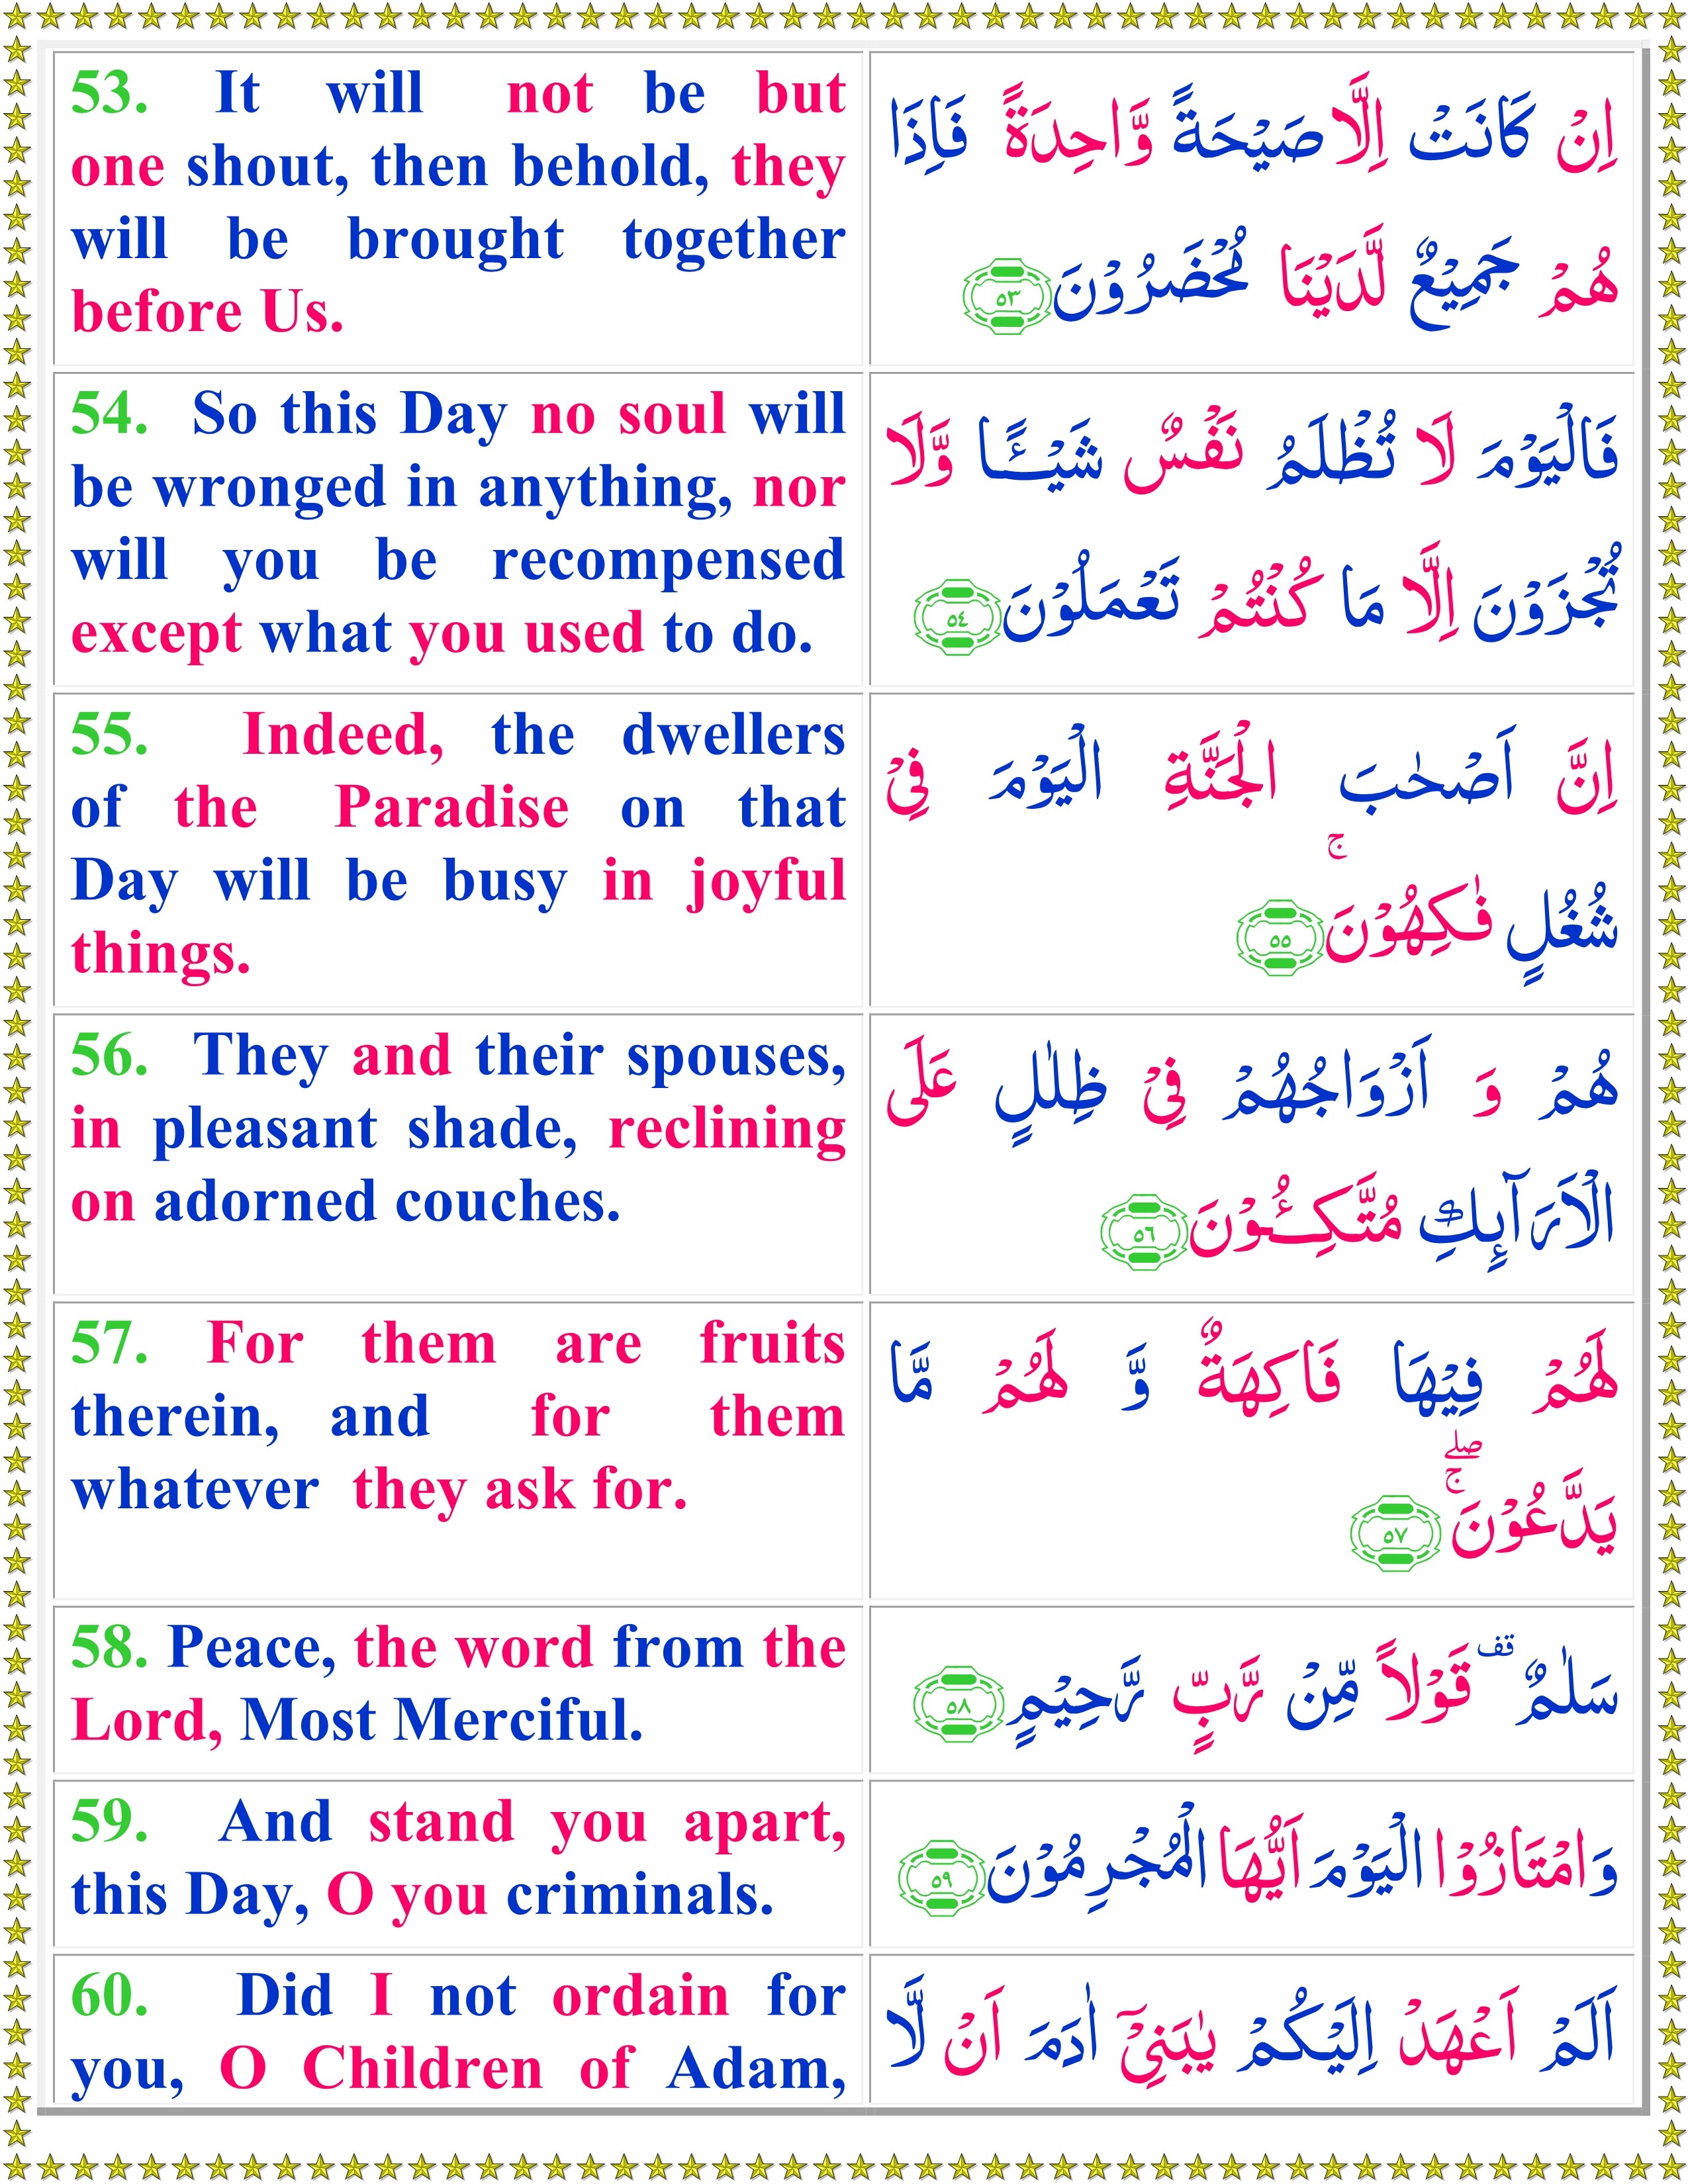 53. It will not be but
one shout, then behold, they
will be brought together
before Us.
اِنْ كَانَتْ اِلَّا صَيْحَةً وَّاحِدَةً فَاِذَا
هُمْ جَمِيْعٌ لَّدَيْنَا مُحْضَرُوْنَ ٥٣
54. So this Day no soul will
be wronged in anything, nor
will you be recompensed
except what you used to do.
فَالْيَوْمَ لَا تُظْلَمُ نَفْسٌ شَيْـًٔـا وَّلَا
تُجْزَوْنَ اِلَّا مَا كُنْتُمْ تَعْمَلُوْنَ ٥٤
55. Indeed, the dwellers
of the Paradise on that
Day will be busy in joyful
things.
اِنَّ اَصْحٰبَ الْجَنَّةِ الْيَوْمَ فِىْ
شُغُلٍ فٰكِهُوْنَ ۚ ٥٥
56. They and their spouses,
in pleasant shade, reclining
on adorned couches.
هُمْ وَ اَزْوَاجُهُمْ فِىْ ظِلٰلٍ عَلَى
الْاَرَآئِكِ مُتَّكِـُٔـوْنَ ٥٦
57. For them are fruits
therein, and for them
whatever they ask for.
لَهُمْ فِيْهَا فَاكِهَةٌ وَّ لَهُمْ مَّا
يَدَّعُوْنَ ۚ ۖ ٥٧
58. Peace, the word from the
Lord, Most Merciful.
سَلٰمٌ قف قَوْلاً مِّنْ رَّبٍّ رَّحِيْمٍ ٥٨
59. And stand you apart,
this Day, O you criminals.
وَامْتَازُوْا الْيَوْمَ اَيُّهَا الْمُجْرِمُوْنَ ٥٩
60. Did I not ordain for
you, O Children of Adam,
اَلَمْ اَعْهَدْ اِلَيْكُمْ يٰبَنِىْۤ اٰدَمَ اَنْ لَّا